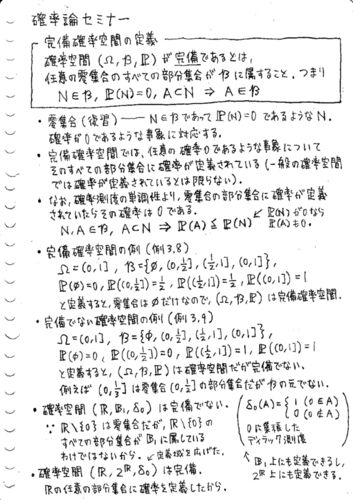 確率論セミナー
完備確率空間の定義
確率空間 (Ω, 𝔅, ℙ) が完備であるとは,
任意の零集合のすべての部分集合が 𝔅 に属すること. つまり
N∈𝔅, ℙ(N)=0, A⊂N ⇒ A∈𝔅
・零集合(復習)── N∈𝔅であって ℙ(N)=0 であるような N.
確率が0であるような事象に対応する.
・完備確率空間では, 任意の確率0であるような事象について
そのすべての部分集合に確率が定義されている (一般の確率空間
では確率が定義されているとは限らない).
・なお, 確率測度の単調性より, 零集合の部分集合に確率が定義
されていたらその確率は0である.
N, A∈𝔅, A⊂N ⇒ ℙ(A)≦ℙ(N) ← ℙ(N)が0なら
ℙ(A)も0.
・完備確率空間の例 (例3.8)
Ω=(0,1], 𝔅={∅, (0,½], (½,1], (0,1]},
ℙ(∅)=0, ℙ((0,½])=½, ℙ((½,1])=½, ℙ((0,1])=1
と定義すると, 零集合は∅だけなので, (Ω, 𝔅, ℙ) は完備確率空間.
・完備でない確率空間の例 (例3.9)
Ω=(0,1], 𝔅={∅, (0,½], (½,1], (0,1]},
ℙ(∅)=0, ℙ((0,½])=0, ℙ((½,1])=1, ℙ((0,1])=1
と定義すると, (Ω, 𝔅, ℙ) は確率空間だが完備でない.
例えば (0,⅓] は零集合 (0,½] の部分集合だが 𝔅 の元でない.
・確率空間 (ℝ, 𝔅₁, δ₀) は完備でない.
∵ ℝ\{0} は零集合だが, ℝ\{0}の
すべての部分集合が 𝔅₁に属している
わけではないから. ↙定義域を広げた.
・確率空間 (ℝ, 2^ℝ, δ₀) は完備.
ℝの任意の部分集合に確率を定義したから.
δ₀(A)={1 (0∈A)
0 (0∉A)
0に集積した
ディラック測度
𝔅₁上にも定義できるし,
2^ℝ上にも定義できる.